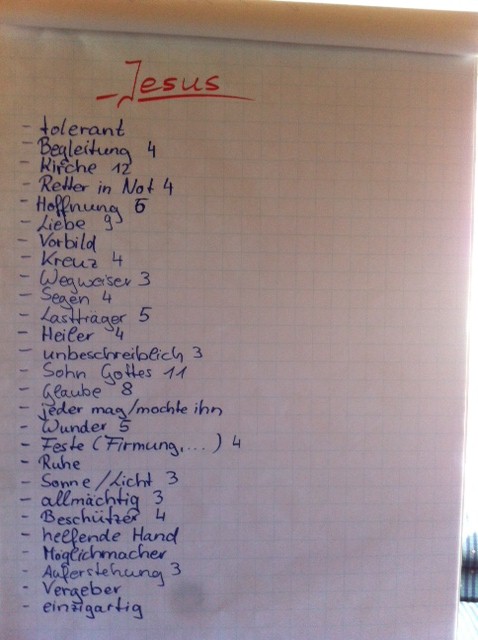 Jesus
- tolerant
- Begleitung 4
- Kirche 12
- Retter in Not 4
- Hoffnung 6
- Liebe 9
- Vorbild
- Kreuz 4
- Wegweiser 3
- Segen 4
- Lastträger 5
- Heiler 4
- unbeschreiblich 3
- Sohn Gottes 11
- Glaube 8
- jeder mag/mochte ihn
- Wunder 5
- Feste (Firmung,...) 4
- Ruhe
- Sonne/Licht 3
- allmächtig 3
- Beschützer 4
- helfende Hand
- Möglichmacher
- Auferstehung 3
- Vergeber
- einzigartig